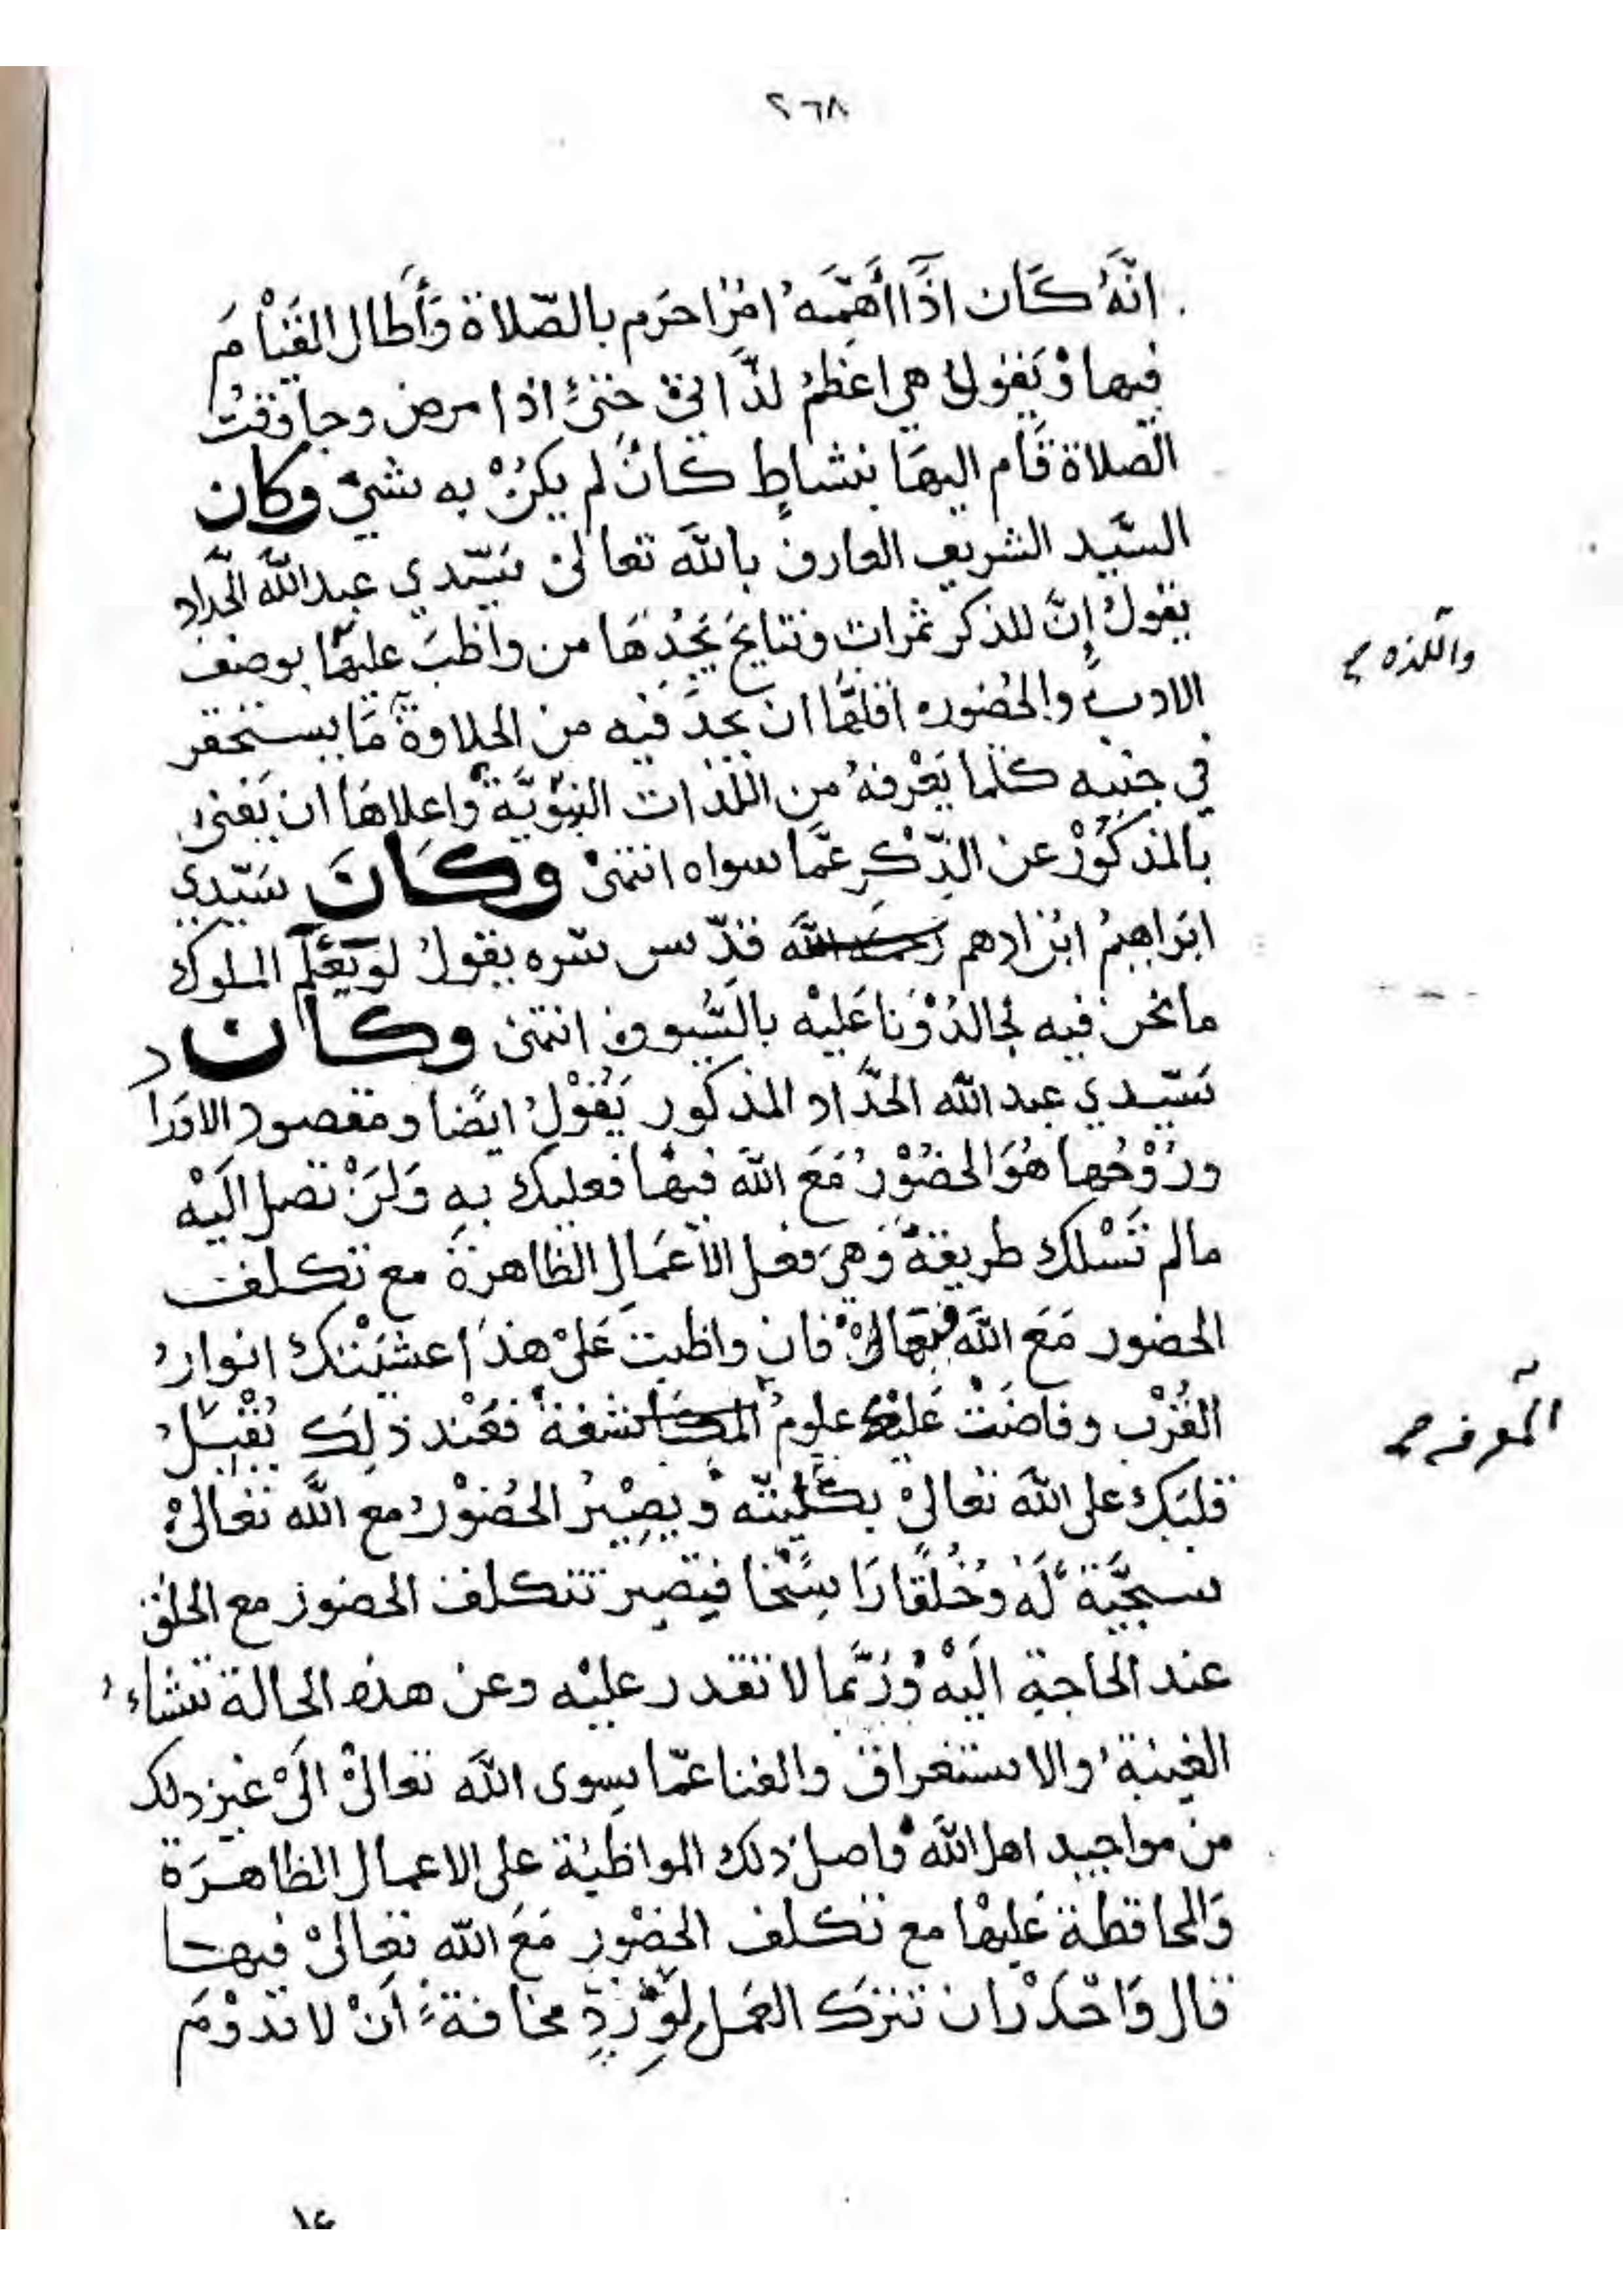 ٢٦٨
انَّهُ كَان اذَا أَهَمَّهُ امْرٌ احرَم بالصّلاة وَأَطال القيَامَ
فيها وَيَقولُ هي اعْظمُ لذَّاتيْ حتىْ اذا مرض وجا وَقتُ
الصلاة قَام اليهَا بنشاطٍ كانْ لم يكنْ به شيْ وكان
السَّيد الشريف العارف بالله تعالىْ سَيّدي عبد الله الحَّداد
يقولُ إنَّ للذكر ثمرات ونتايجَ يَجِدُهَا من واظبَ عليهَا بوصْف
الادب والحُضور واللذه صح اقلهَّا ان يجدَ فيه من الحلاوة مَا يستحقر
في جنبه كلَّما يَعْرفهُ من اللذات النبوَيَّة واعلاهَا ان يَفنىْ
بالمذكُوْر عن الذِّكرِ عَمَّا سواه انتهىْ وكَانَ سَيّدي
ابرَاهيمُ ابْن ادهم قدّس سّره يقولُ لو يَعْلَم الملوك
ما نحن فيه لجالدُوْنا عَليْه بالسَّيوف انتهىْ وكان
سَيّدي عبد الله الحدَّاد المذكور يَقُوْلُ ايضًا ومقصود الاورَاد
ورُوْحُها هُوَ الحضُوْرُ مَعَ الله فيهَا فعليك بهِ وَلنْ تصل الَيْه
مالم تَسْلك طريقهُ وَهيَ فعل الأعمَال الظاهرَة مع تكلف
الحضور مَعَ الله فيها فان واظبتَ عَلىْ هذَا غشيَتْك انوارُ
القُرْب وفاضَتْ عَليْك علومُ المعرفه صح فعَنْد ذلك يُقْبلُ
قلبَك على الله تعَالىْ بكلّيتّه ويَصِيْرُ الحُضوْر مع الله تعَالىْ
سجيَّة لَهُ وخُلقًا رَاسخًا فيَصير تتكلف الحضور مع الخلق
عند الحَاجة اليْهْ وُربَّما لا تقدر عليْه وعنْ هذه الحالة تنشاءُ
الغيبَةُ والاستغراق والفنا عمّا سِوى اللهَ تعَالىْ الَىْ غيْر ذلك
من مواجيد اهل الله وَاصلُ ذلك المواظبَة على الاعمال الظاهرَة
وَالمحافظة عَليْها مع تكلف الحضْور مَعَ الله تعَالىْ فيها
قال وَاحْذرْ ان تترَك العَمل لوِرْدٍ مخافةَ انْ لا تدوْمَ